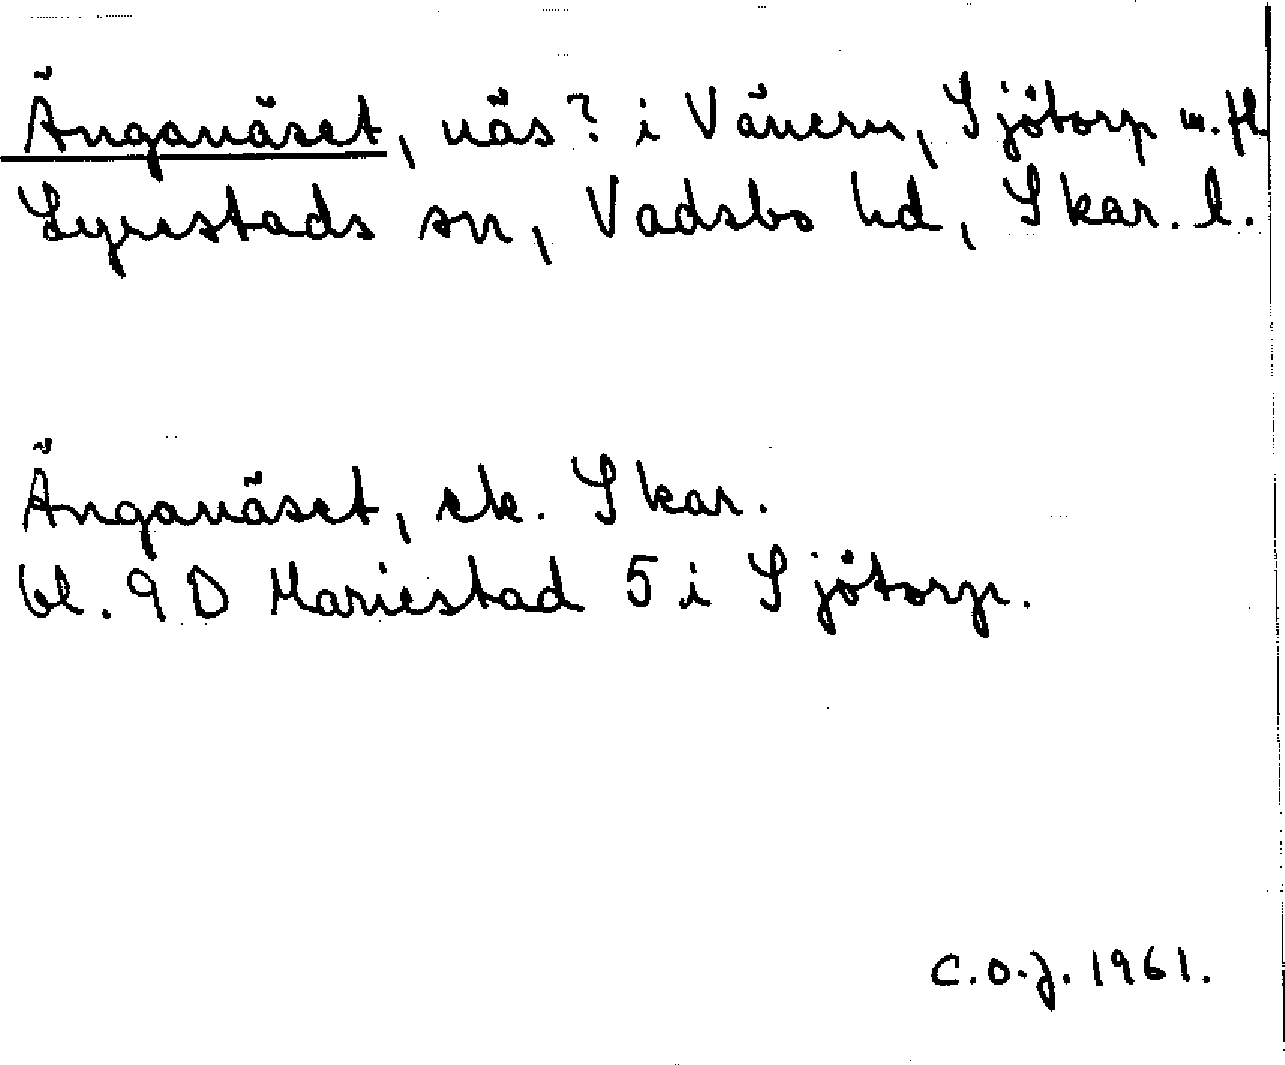 Änganäset, näs? i Vänern, Sjötorp m.fl.
Lyrestads sn, Vadsbo hd, Skar. l.
Änganäset, ek. Skar.
bl. 9 D Mariestad 5 i Sjötorp.
C.O.J. 1961.